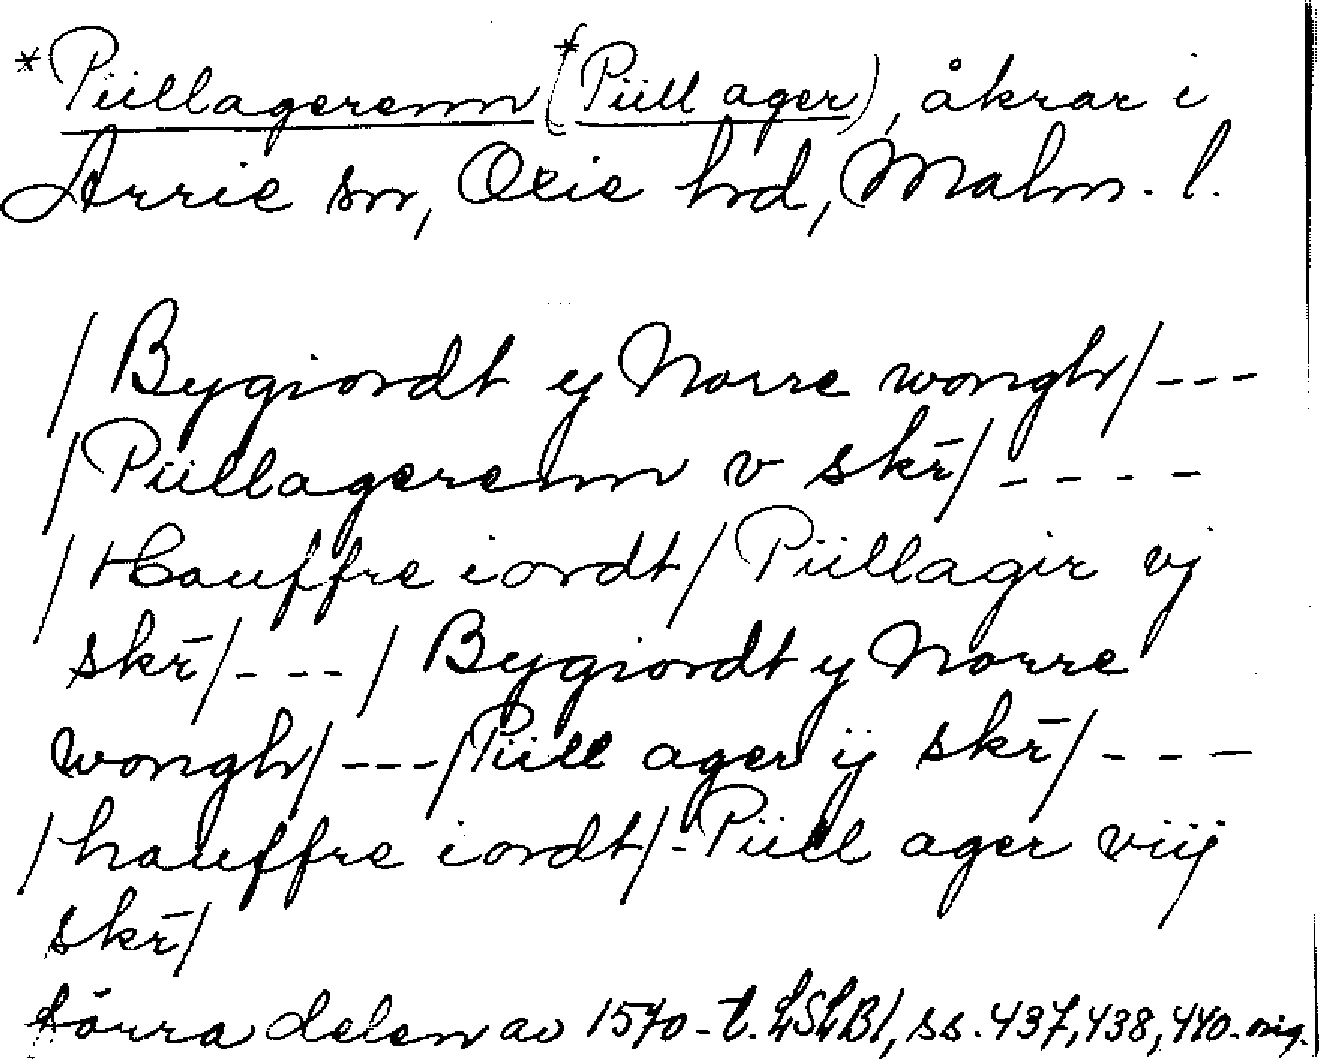 *Püllagerenn (*Püll ager), åkrar i
Arrie sn, Oxie hd, Malm. l.
/Bygiordt y Norre wongh/---
/Püllagerenn v skr̄/----
/Hauffre iordt/Püllagir vj
skr̄/---/Bygiordt y Norre
wongh/---/Püll ager ij skr̄/---
/hauffre iordt/-Püll ager viij
skr̄/
förra delen av 1570-t. LSLB1, ss. 437, 438, 440. orig.